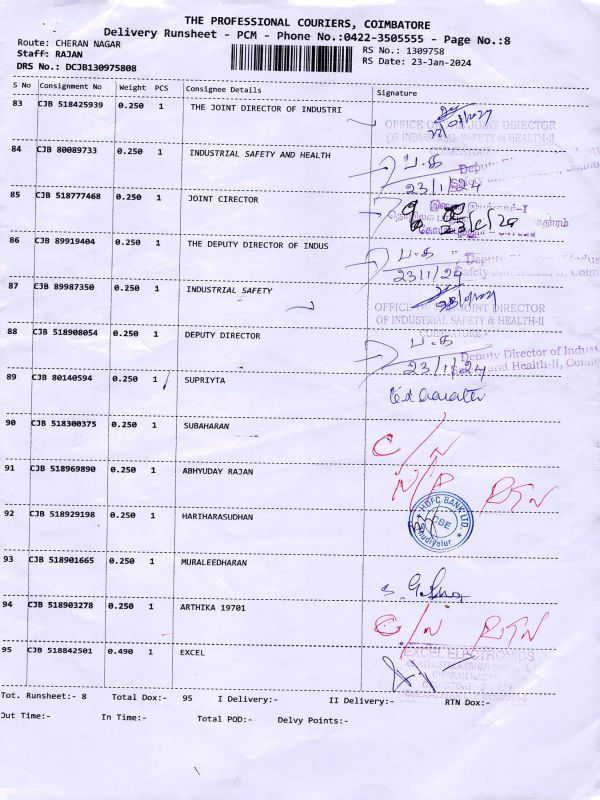 THE PROFESSIONAL COURIERS, COIMBATORE
Delivery Runsheet - PCM - Phone No.:0422-3505555 - Page No.:8
Route: CHERAN NAGAR
RS No.: 1309758
Staff: RAJAN
RS Date: 23-Jan-2024
DRS No.: DCJB130975808
S No Consignment No Weight PCS Consignee Details Signature
83 CJB 518425939 0.250 1 THE JOINT DIRECTOR OF INDUSTRI
OFFICE OF THE JOINT DIRECTOR
OF INDUSTRIAL SAFETY & HEALTH-II
84 CJB 80089733 0.250 1 INDUSTRIAL SAFETY AND HEALTH
ப.க
23/1/24
85 CJB 518777468 0.250 1 JOINT CIRECTOR
86 CJB 89919404 0.250 1 THE DEPUTY DIRECTOR OF INDUS
ப.க
23/1/24
87 CJB 89987350 0.250 1 INDUSTRIAL SAFETY
OFFICE OF THE JOINT DIRECTOR
OF INDUSTRIAL SAFETY & HEALTH-II
88 CJB 518908054 0.250 1 DEPUTY DIRECTOR
ப.க
Deputy Director of Indust
23/1/24
and Health-II, Coim
89 CJB 80140594 0.250 1 SUPRIYTA
90 CJB 518300375 0.250 1 SUBAHARAN
C/N
91 CJB 518969890 0.250 1 ABHYUDAY RAJAN
N/R RTN
92 CJB 518929198 0.250 1 HARITHARASUDHAN
HDFC BANK LTD
CBE
93 CJB 518901665 0.250 1 MURALEEDHARAN
94 CJB 518903278 0.250 1 ARTHIKA 19701
C/N RTN
95 CJB 518842501 0.490 1 EXCEL
EXCEL ELECTRONICS
Tot. Runsheet:- 8 Total Dox:- 95 I Delivery:- II Delivery:- RTN Dox:-
Out Time:- In Time:- Total POD:- Delvy Points:-